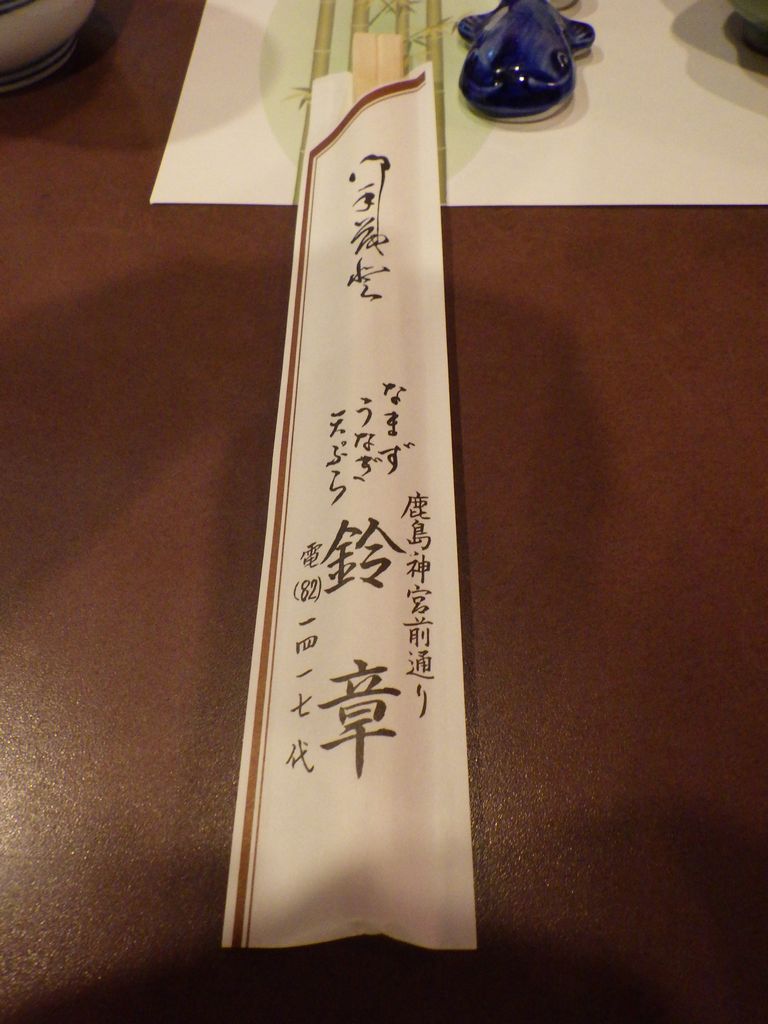 御手茂登
なまず
うなぎ
天ぷら
鹿島神宮前通り
鈴章
電(82)一四一七代